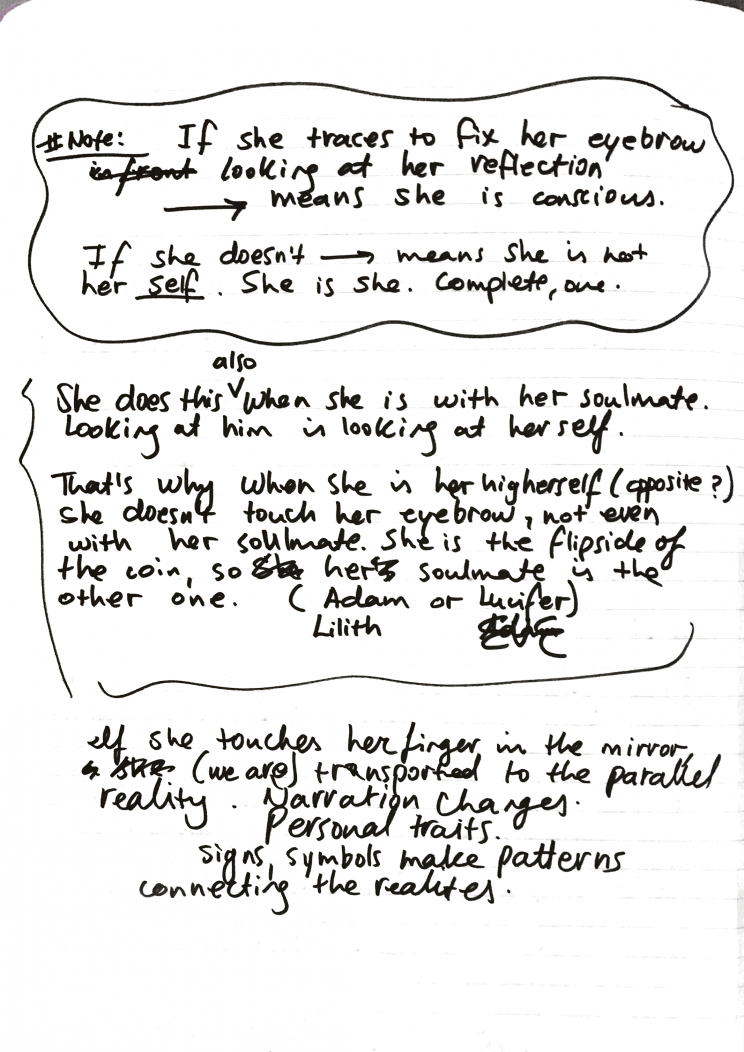 # Note: If she traces to fix her eyebrow
in front looking at her reflection
→ means she is conscious.
If she doesn't → means she is not
her self. She is she. Complete, one.
also
She does this ∨ when she is with her soulmate.
Looking at him is looking at herself.
That's why when she is her higherself (opposite?)
she doesn't touch her eyebrow, not even
with her soulmate. She is the flipside of
the coin, so she her's soulmate is the
other one. (Adam or Lucifer)
Lilith
If she touches her finger in the mirror,
(we are) transported to the parallel
reality. Narration changes.
Personal traits.
Signs, symbols make patterns
connecting the realites.